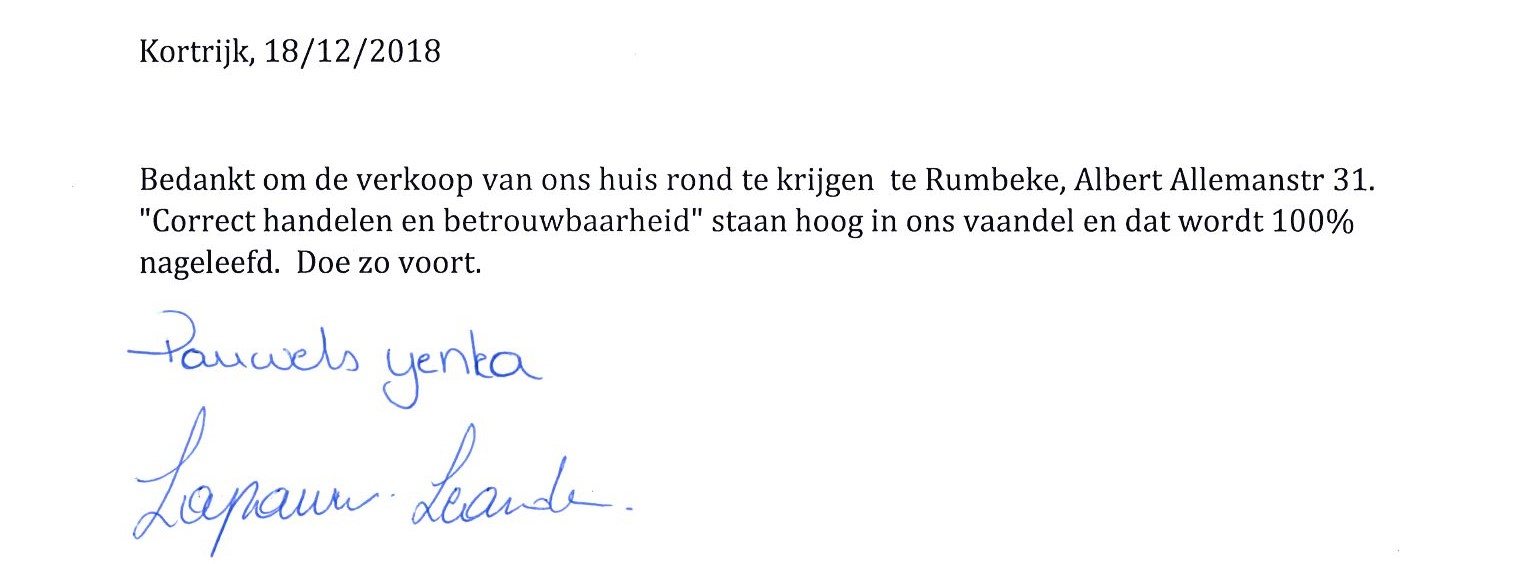 Kortrijk, 18/12/2018
Bedankt om de verkoop van ons huis rond te krijgen te Rumbeke, Albert Allemanstr 31.
"Correct handelen en betrouwbaarheid" staan hoog in ons vaandel en dat wordt 100%
nageleefd. Doe zo voort.
Pauwels Yenka